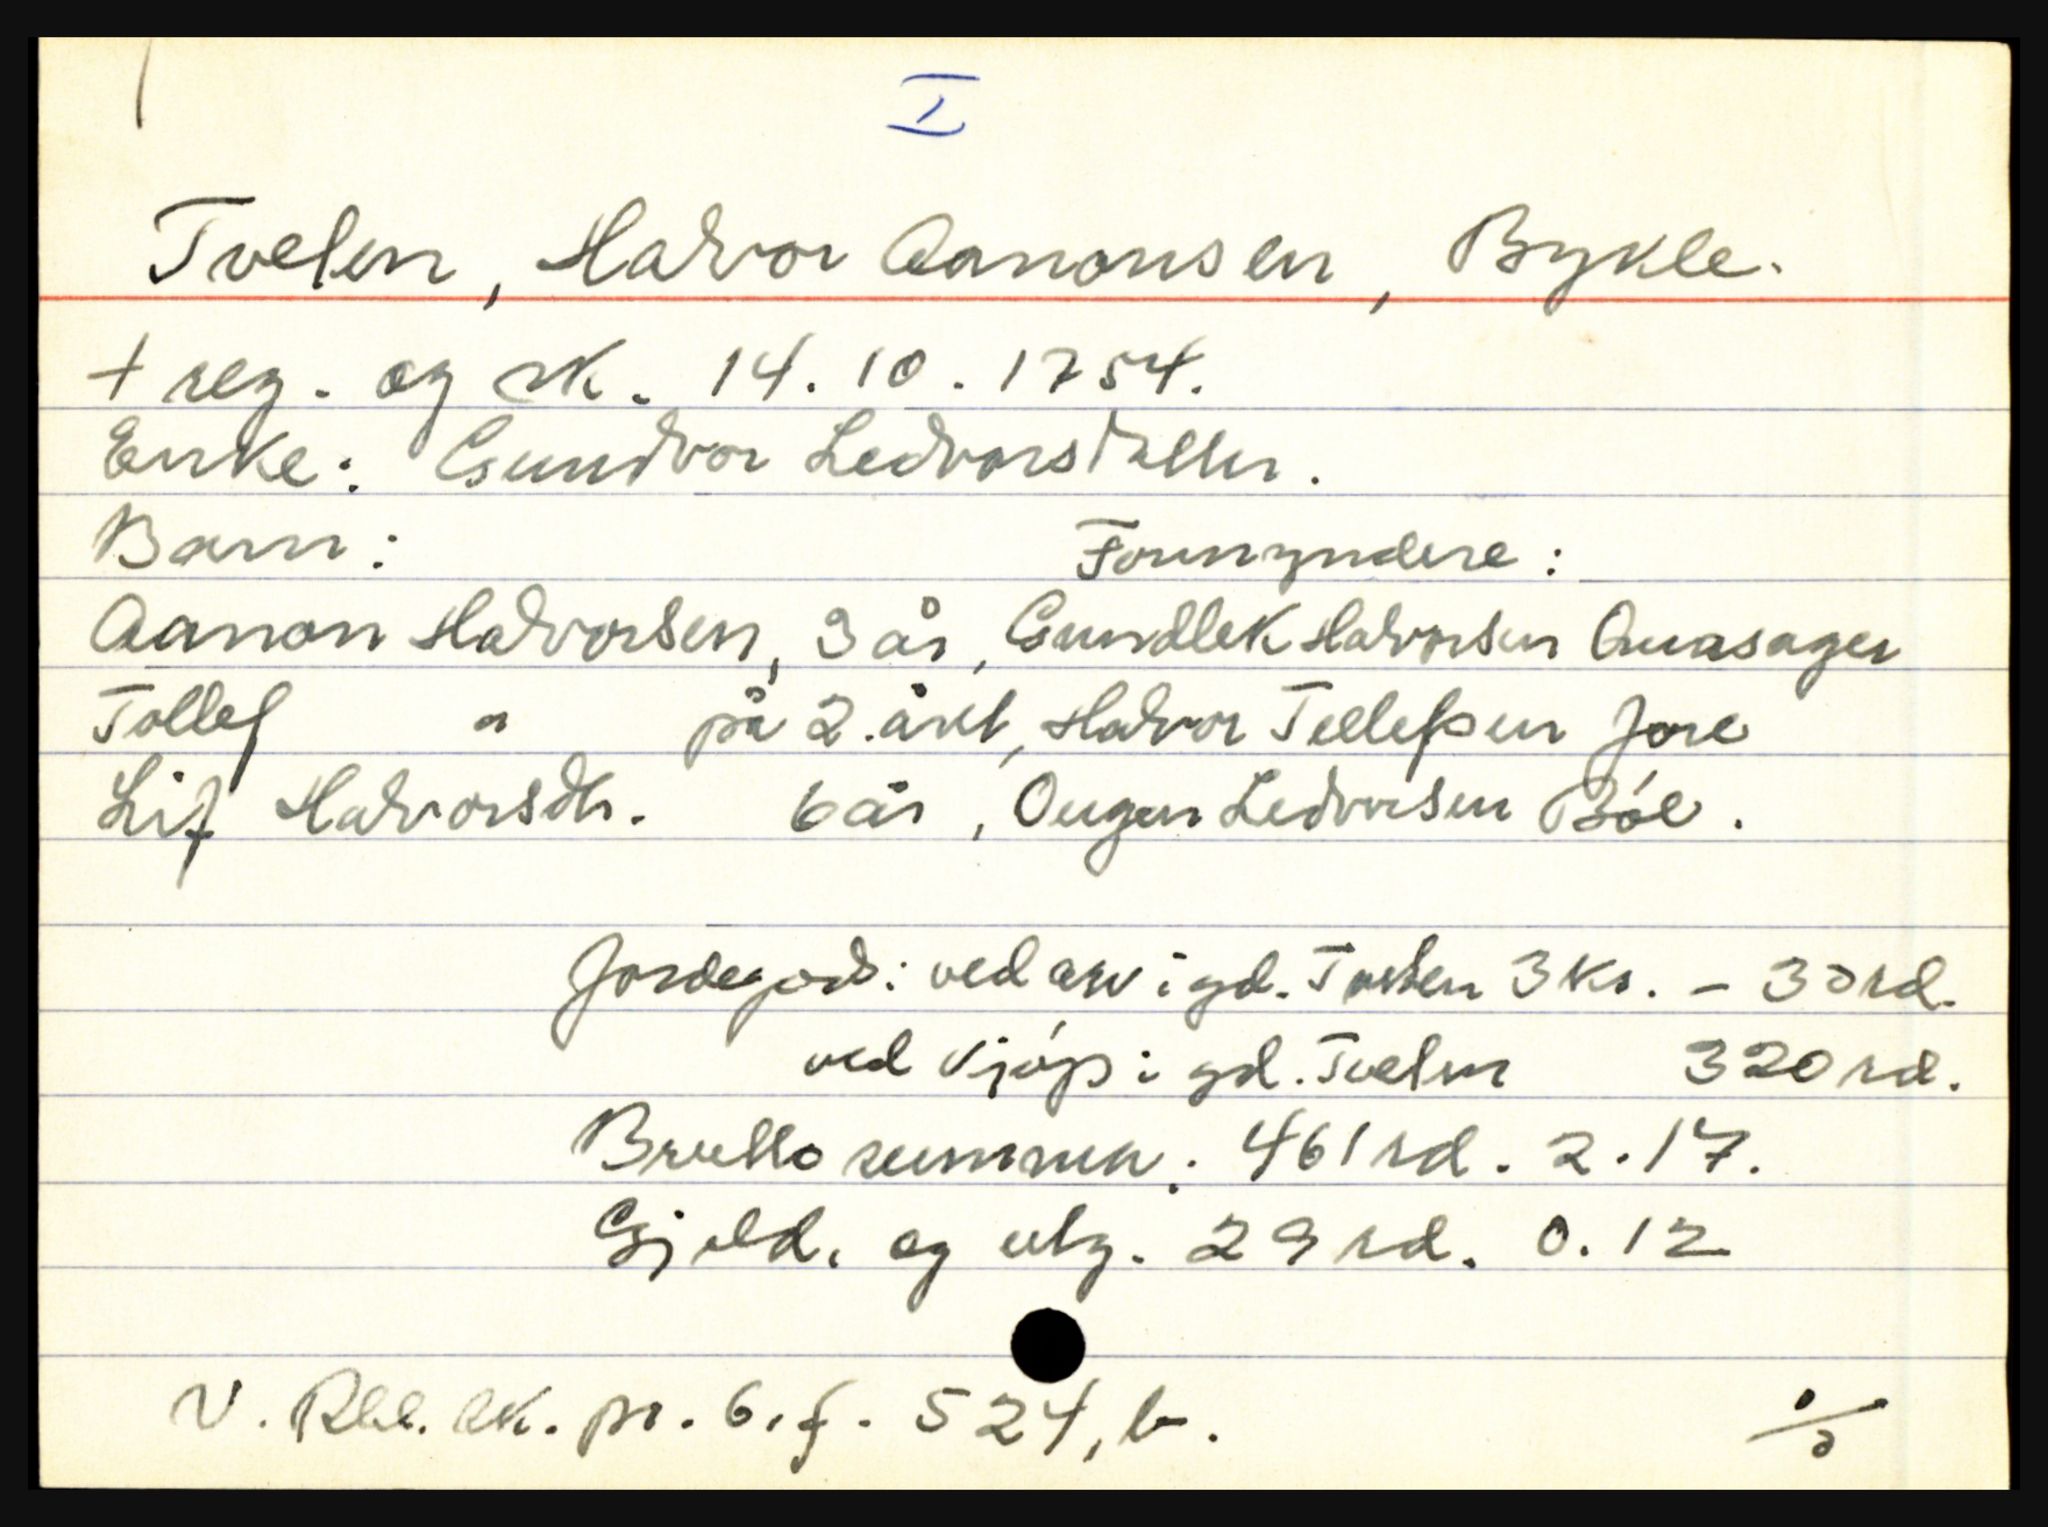 I
Tvelen, Halvor Aanonsen, Bykle.
+ reg. og sk. 14.10.1754.
Enke: Gundvor Ledvorsdatter.
Barn: Formyndere:
Aanon Halvorsen, 3 år, Gundlek Halvorsen
Tollef " på 2. året, Halvor Tellefsen Jore
Lif Halvorsdtr. 6 år, Ougen Ledvorsen Bóe.
Jordegods: ved arv i gd. 3 kr. - 30 rd.
ved kjóp i gd. Tvelen 320 rd.
Brutto summen. 461 rd. 2.17.
Gjeld. og utg. 29 rd. 0.12
V. Rbl. sk. pr. 6. f. 524, b.